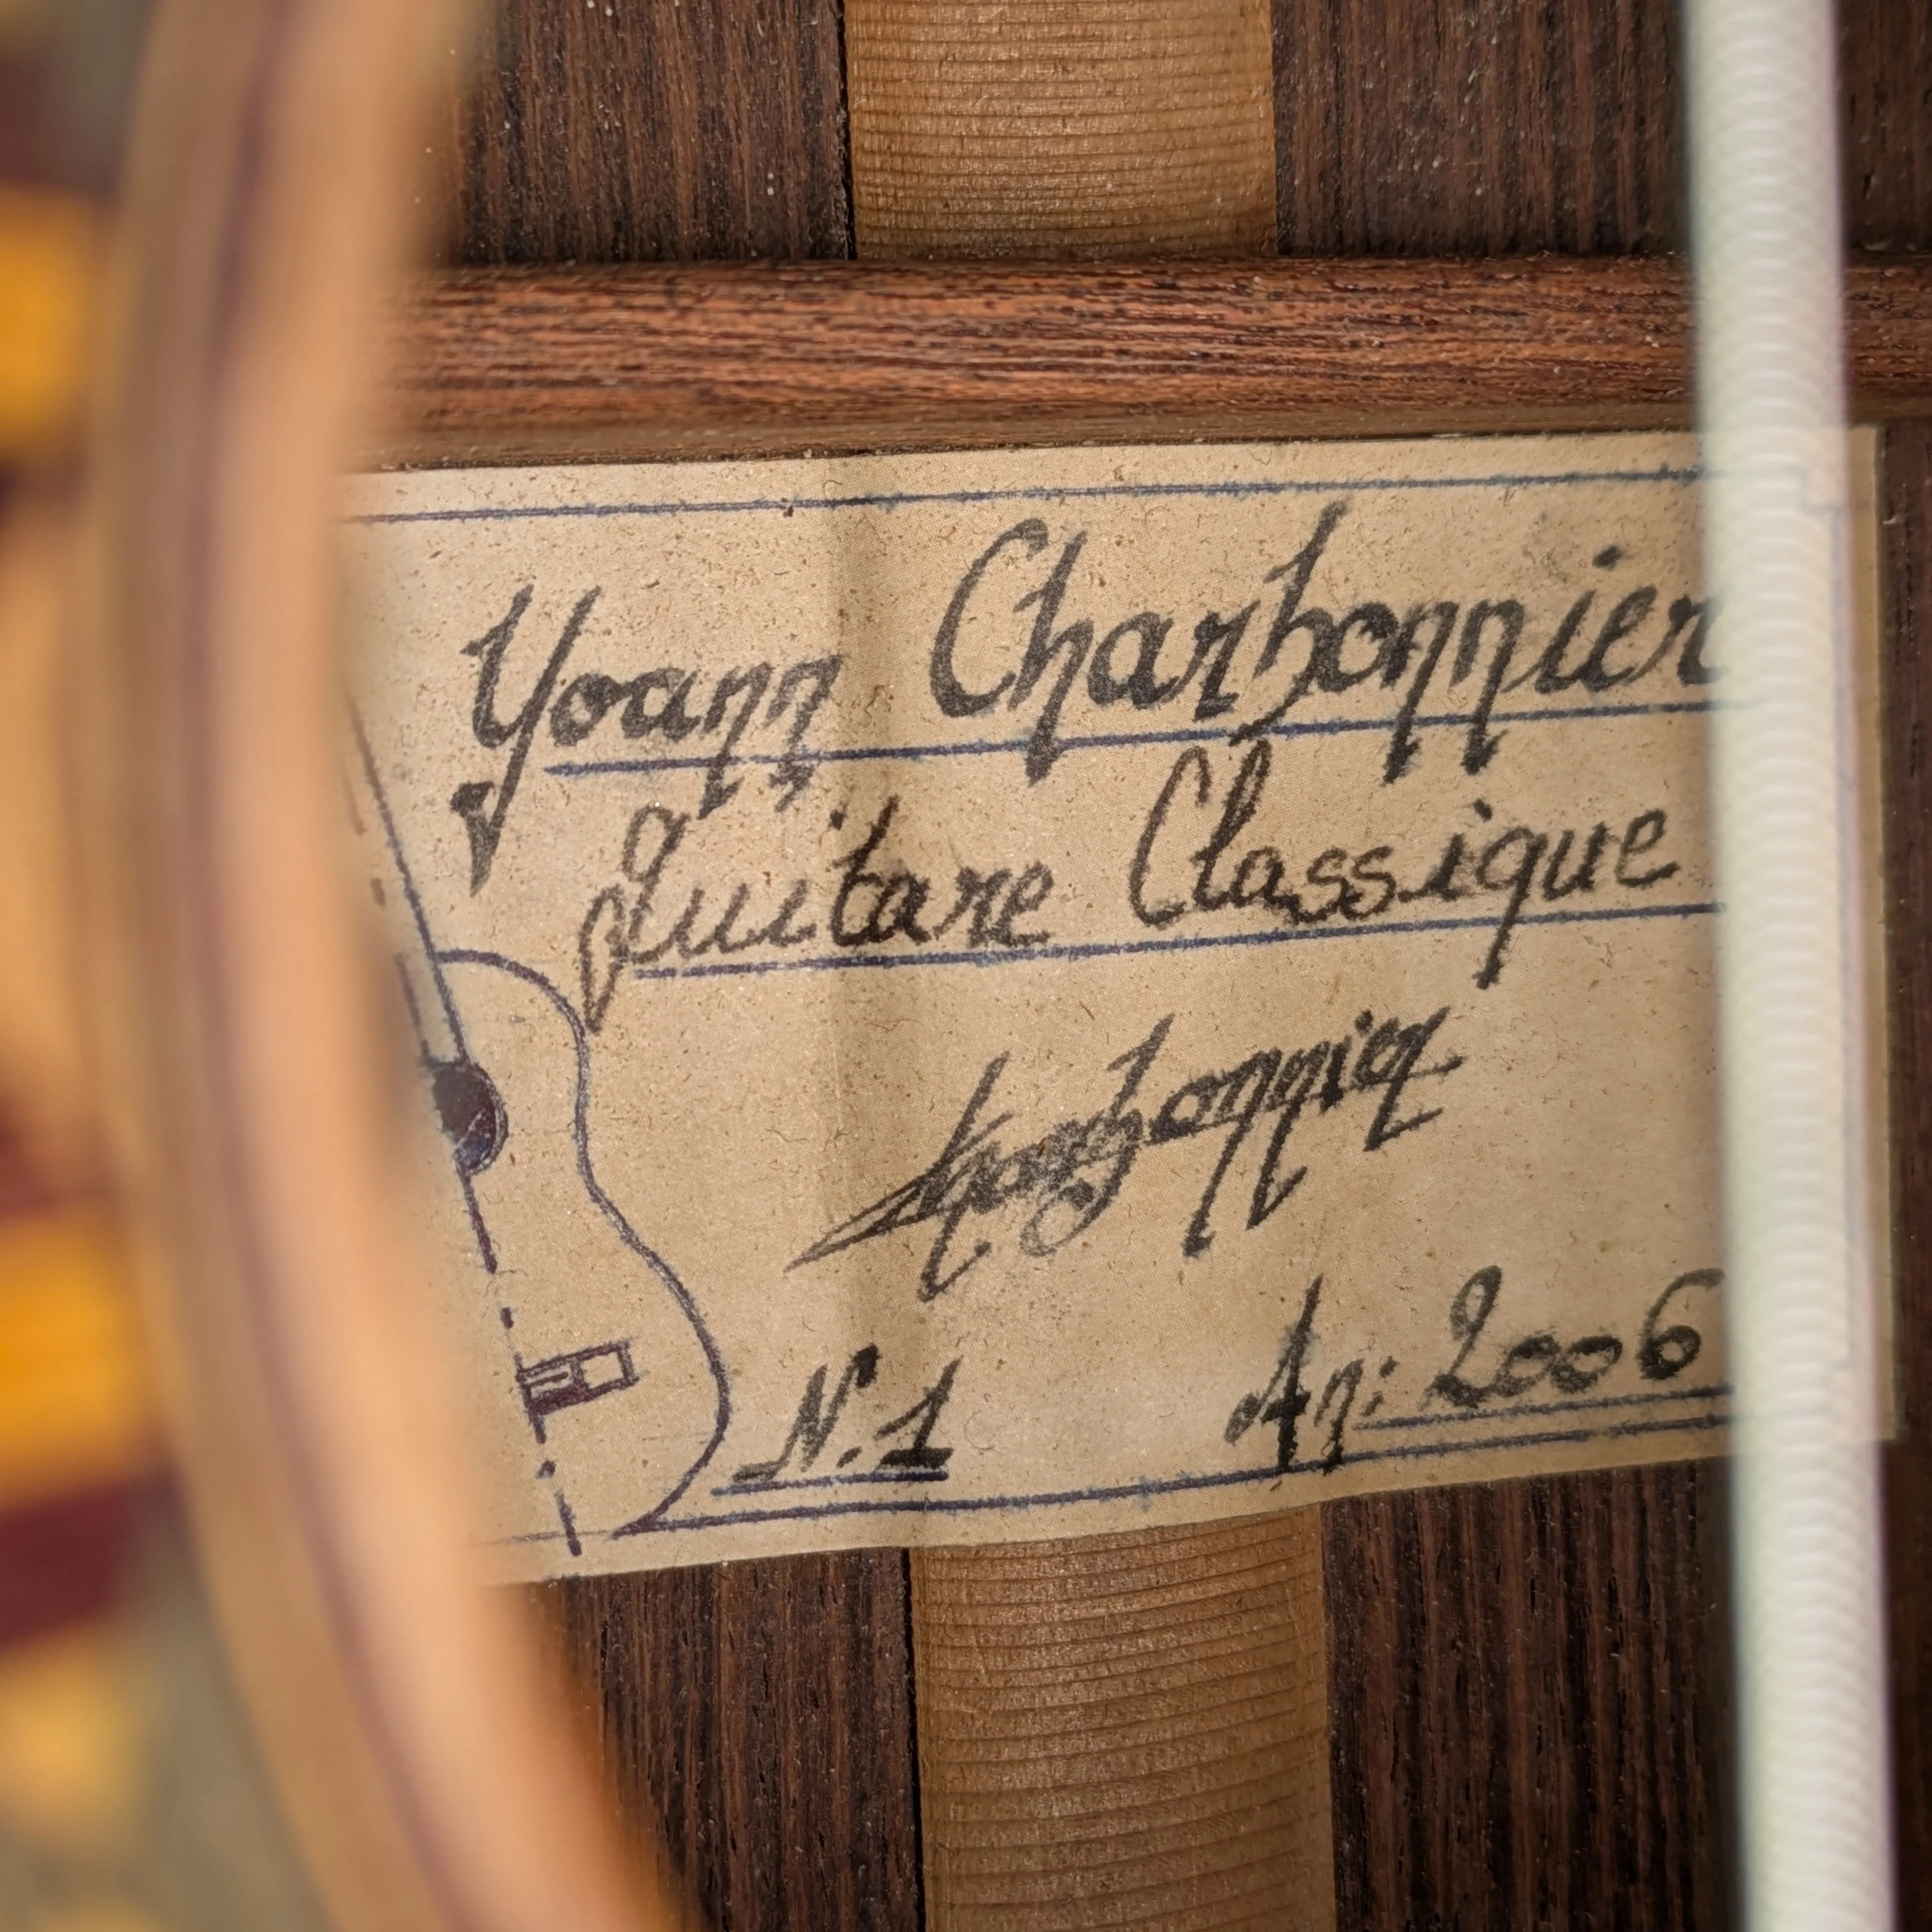 Yoann Charbonnier
guitare Classique
Charbonnier
N.1 An: 2006